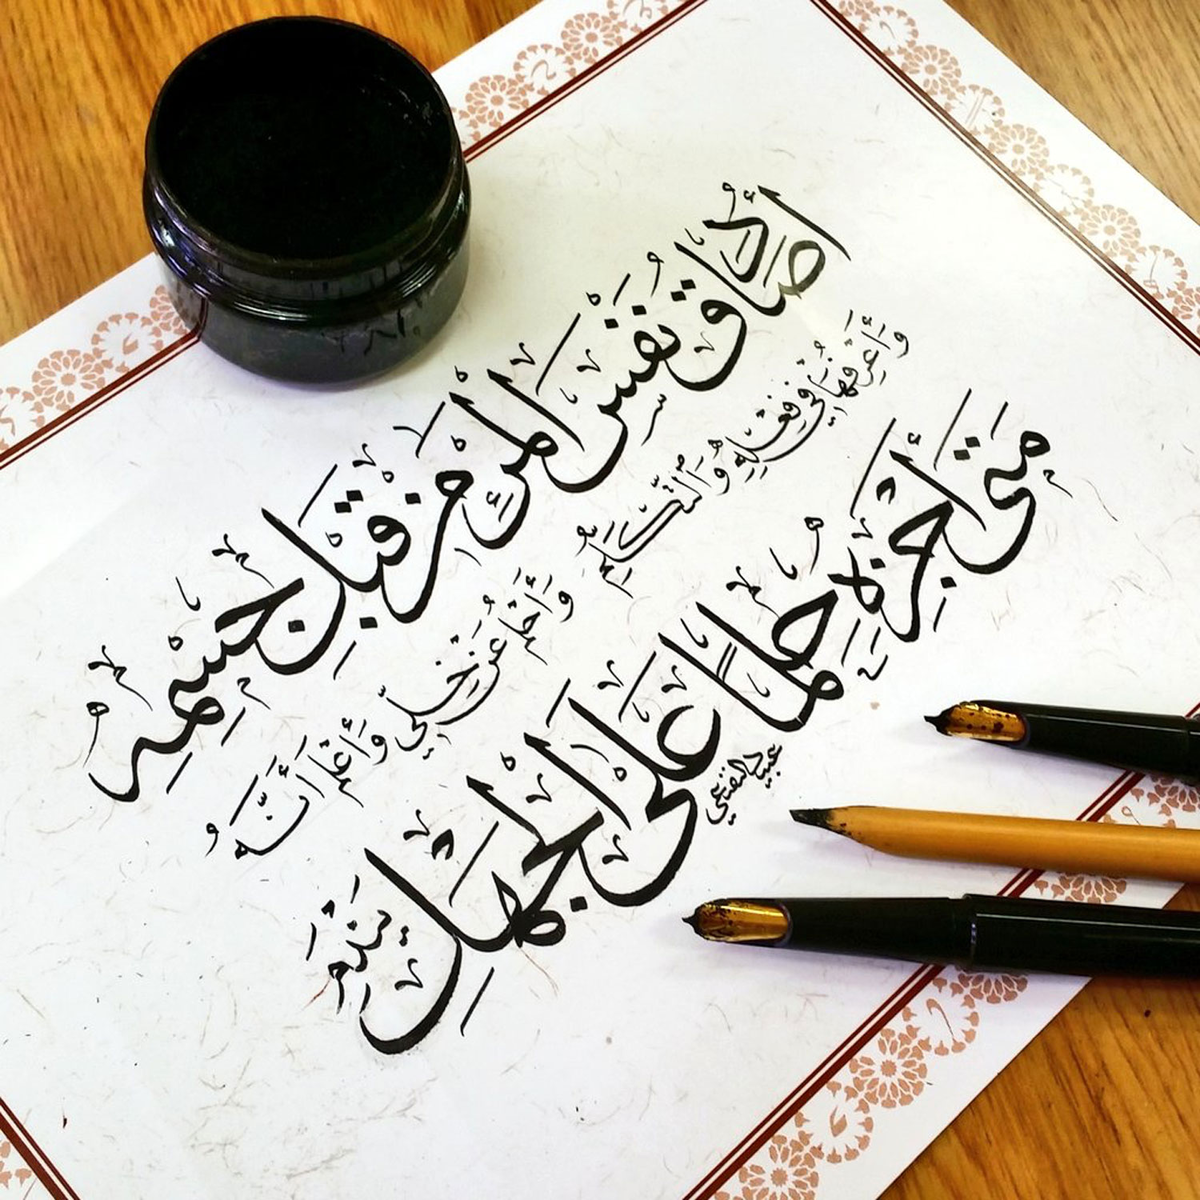 أُصَادِقُ نَفْسَ الْمَرْءِ مِنْ قَبْلِ جِسْمِهِ
وَأَعْرِفُهَا فِي فِعْلِهِ وَالتَّكَلُّمِ
وَأَحْلُمُ عَنْ خِلِّي وَأَعْلَمُ أَنَّهُ
مَتَى أَجْزِهِ حِلْمًا عَلَى الْجَهْلِ يَنْدَمِ
عبيد النفيعي